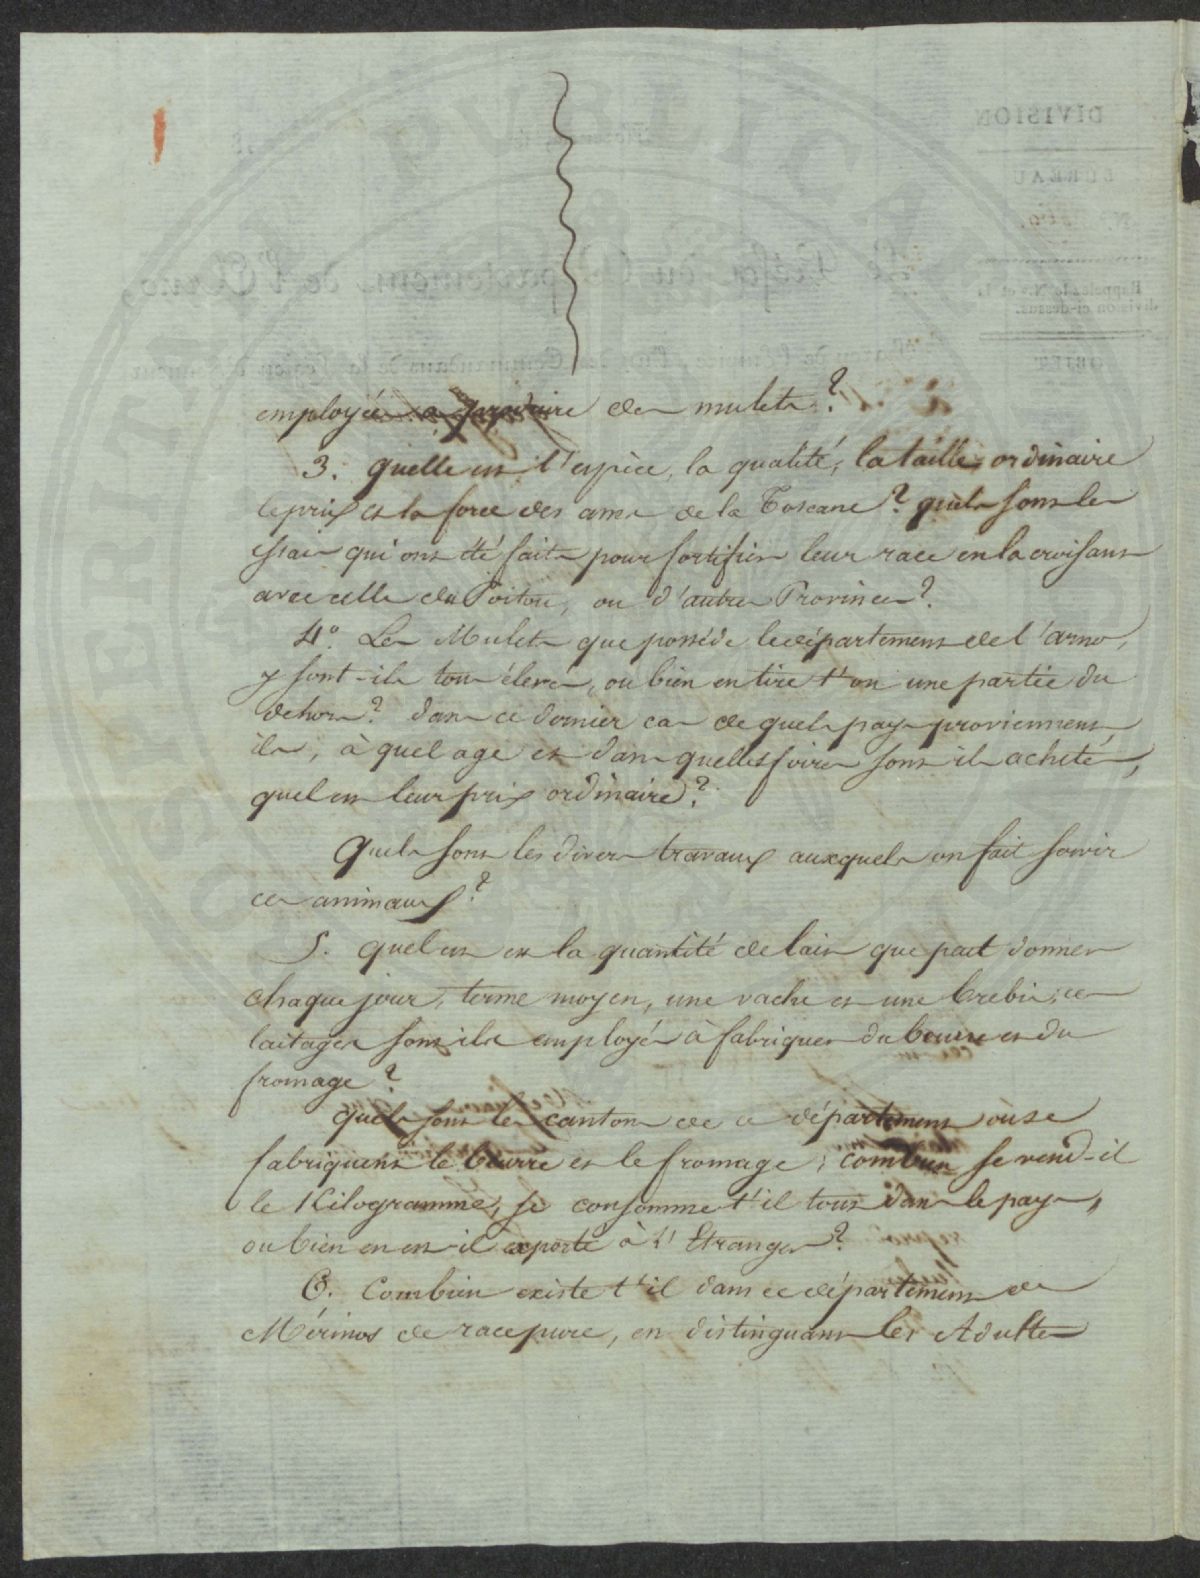 employées a produire des mulets ?
3. quelle est l'espèce, la qualité, la taille, ordinaire
le prix et la force des anes de la Toscane ? quels sont les
essais qui ont été faits pour fortifier leur race en la croisant
avec celle du Poitou, ou d'autres Provinces ?
4º. Les Mulets que possède le département de l'arno,
y sont-ils tous élevés, ou bien en tire t'on une partie du
dehors ? dans ce dernier cas de quels pays proviennent
ils, à quel age et dans quelles foires sont ils achetés,
quel est leur prix ordinaire ?
Quels sont les divers travaux auxquels on fait servir
ces animaux ?
5. quel est la quantité de lait que peut donner
chaque jour, terme moyen, une vache et une brebis, ces
laitages sont ils employés à fabriquer du beurre et du
fromage ?
quels sont les cantons de ce département ou se
fabriquent le beurre et le fromage ; combien se vend-il
le Kilogramme, se consomme t'il tout dans le pays,
ou bien en est-il exporté à l'Etranger ?
6. Combien existe t'il dans ce département de
Mérinos de race pure, en distinguant les Adultes